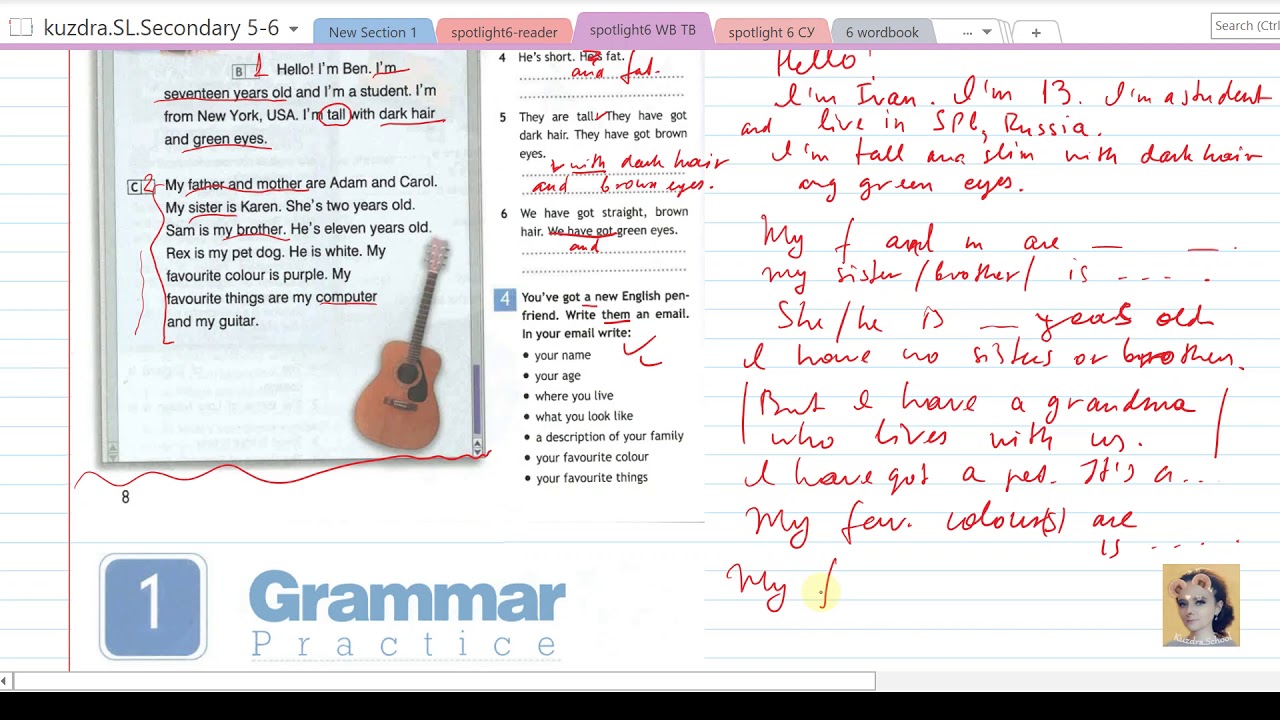 kuzdra.SL.Secondary 5-6
New Section 1
spotlight6-reader
spotlight6 WB TB
spotlight 6 СУ
6 wordbook
...
+
Search (Ctrl
B 1 Hello! I'm Ben. I'm
seventeen years old and I'm a student. I'm
from New York, USA. I'm tall with dark hair
and green eyes.
C 2 My father and mother are Adam and Carol.
My sister is Karen. She's two years old.
Sam is my brother. He's eleven years old.
Rex is my pet dog. He is white. My
favourite colour is purple. My
favourite things are my computer
and my guitar.
8
4 He's short. He's fat.
and fat.
5 They are tall. They have got
dark hair. They have got brown
eyes.
with dark hair
and brown eyes.
6 We have got straight, brown
hair. We have got green eyes.
and
4 You've got a new English pen-
friend. Write them an email.
In your email write:
• your name
• your age
• where you live
• what you look like
• a description of your family
• your favourite colour
• your favourite things
1 Grammar
Practice
Hello!
I'm Ivan. I'm 13. I'm a student
and live in SPb, Russia.
I'm tall and slim with dark hair
and green eyes.
My f and m are — —.
My sister/brother/ is ....
She/he is — years old
I have no sisters or brothers.
But I have a grandma
who lives with us.
I have got a pet. It's a...
My fav. colour(s) are
is ....
My f
Kuzdra.School